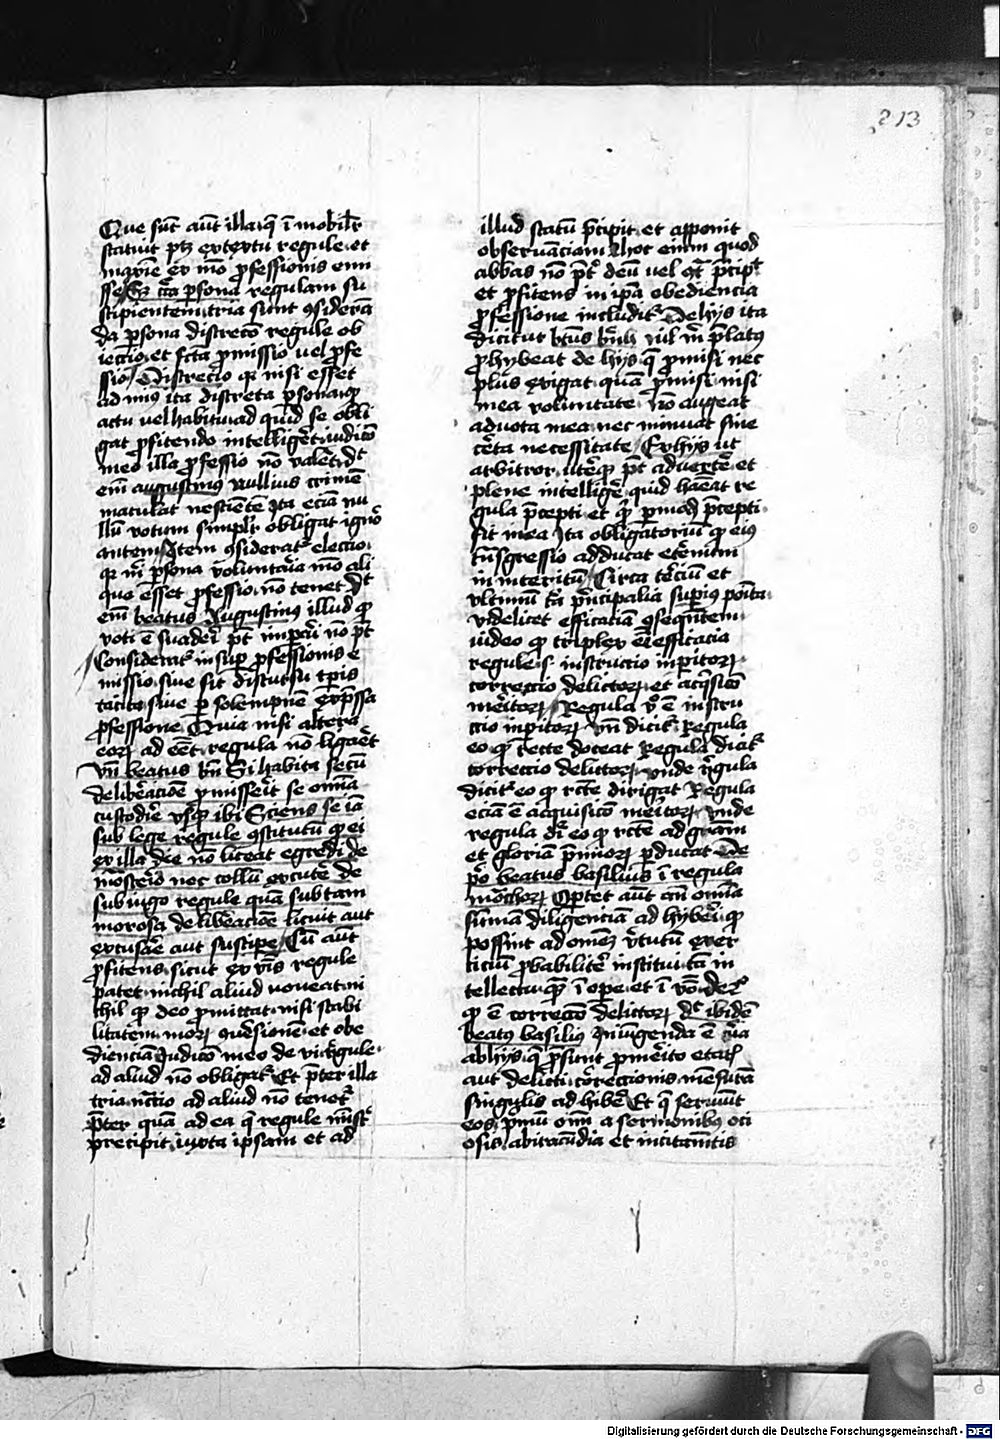 213
Que sūt aūt illa q̄ ī mobilr̄
statuit ptʒ ex textu regule et
maxīe ex mō ꝓfessionis enn
sse Sʒ cc̄a ꝑsona regulam su
scipientem tria sunt ꝯsiderā
da ꝑsona discrecō regule ob
ieccio et scta ꝓmissio uel ꝓfe
ssio Discrecio qꝛ nisi esset
ad mīꝰ ita discreta ꝑsona qꝫ
actu uel habitu ad quid se obli
gat ꝓfitendo intelligēt iudicō
meo illa ꝓfessio nō valet dt̄
em̄ augustinꝰ nullius crimē
maculat nescientē Ita eciā nu
llū votum simplr̄ obligat ignō
rantem Item ꝯsideratᷣ eleccio
qꝛ nī ꝑsona volūntaria mō ali
quo esset ꝓfessio nō tenet dt̄
em̄ beatus Augustinus illud qꝫ
voti ē suaderi pt̄ impari nō pt̄
Consideratᷣ in suꝑ ꝓfessionis e
missio siue sit discursu tꝑis
tacita siue ꝑ solempnē exp̄ssa
ꝓfessione Quia nisi altera
eoꝝ ad eēt regula nō ligaēt
vn̄ beatus bn̄ Si habita secū
delibēacōe ꝓmisserit se omīa
custodire vsqꝫ ibi Sciens se iā
sub lege regule ꝯstitutū qꝫ ei
ex illa die nō liceat egredi de
mōsterio nec collū excutē de
sub iugo regule quā sub tam
morosa delibēacōe licuit aut
excusare aut suscipe Cū aūt
ꝓfitens sicut ex ꝟbis regule
patet nichil aliud voueat ni
chil qꝫ deo ꝓmittat nisi stabi
litatem moꝝ ꝯuersionē et obe
dienciā Iudicō meo de vi regule
ad aliud nō obligatᷣ Et p̄ter illa
tria nccio ad aliud nō tenetᷣ
p̄ter quā ad ea q̄ regule mistᷣ
precipit iuxta ipsam et ad
illud statū p̄cipit et apponit
obseruanciam Hoc enim quod
abbas nō pt̄ deū uel qd̄ p̄cipit
et ꝓfitens in ip̄a obediencia
ꝓfessione includitᷣ De hijs ita
dicitur btūs bn̄h nil m̄ p̄latꝰ
ꝓhybeat de hijs q̄ ꝓmisi nec
plus exigat quā ꝓmisi nisi
mea voluntate nō augeat
aduota mea nec minuat sine
cēta necessitate Ex hijs ut
arbitror utcqꝫ pt̄ aduertē et
plene intelligē quid habeat re
gula p̄cepti et qꝫ ꝑ modū p̄cepti
sit mea Ita obligatoriū qꝫ eiꝰ
tn̄sgressio adducat etēnum
in interitū Circa tēciū et
vltimū tn̄ p̄ncipalia suꝑiꝰ posita
videlicet efficaciā ꝯseqn̄tem
uideo qꝫ triplex ē efficacia
regule s̄ instruccio inꝑitoꝝ
correccio delictoꝝ et acq̄sicō
meritoꝝ Regula v̄o ē instru
ccio inꝑitoꝝ vn̄ dicitᷣ Regula
eo qꝫ recte doceat Regula dicitᷣ
correccio delictoꝝ vnde regula
dicitᷣ eo qꝫ rcte dirigat Regula
eciā ē acquisicō meritoꝝ vnde
regula dr̄ eo qꝫ rcte ad grām
et gloriā p̄mioꝝ ꝑducat De
pº beatus basilius ī regula
mōchoꝝ Oportet aūt an̄ omīa
sūmā diligenciā ad hyberi qꝫ
possint ad omēs ꝟtutū exer
ticiū ꝓbabilitē institui tā in
tellectu qꝫ ī ope et ī
qꝫ ē correccō delictoꝝ dt̄ ibidē
beatꝰ basiliꝰ In iungenda ē cū̄a
ab hijs q̄ p̄sunt ꝓ merito etatis
aut delicti correccionis mēsurā
singulis ad hiberi Et q̄ seruūt
eos pmū om̄i a sermonibꝰ oci
osis ab iracūdia et incitamētis
Digitalisierung gefördert durch die Deutsche Forschungsgemeinschaft - DFG